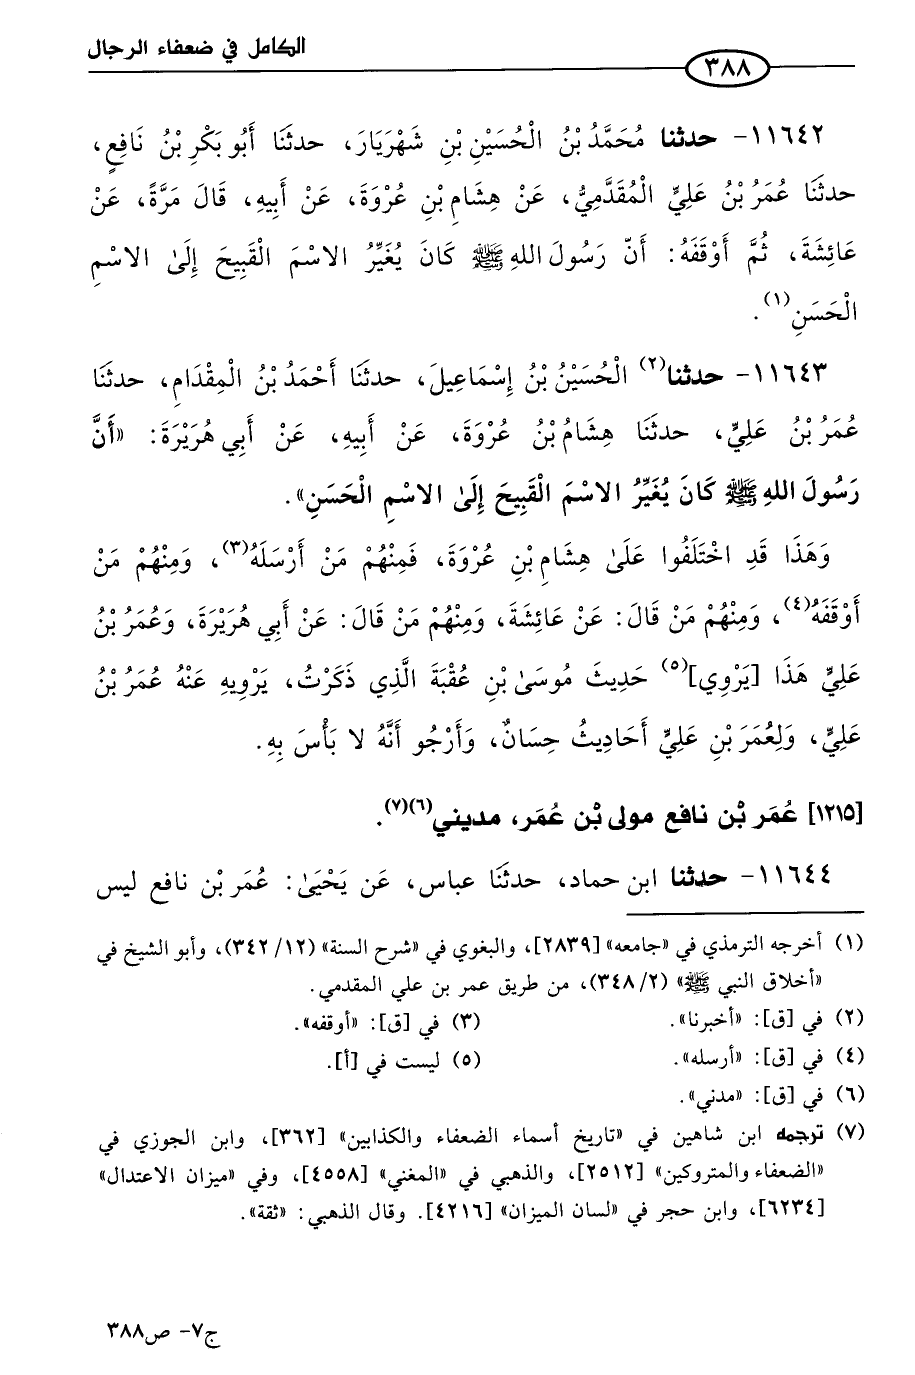 الكامل في ضعفاء الرجال
٣٨٨
١١٦٤٢- حدثنا مُحَمَّدُ بْنُ الْحُسَيْنِ بْنِ شَهْرَيَارَ، حدثَنَا أَبُو بَكْرِ بْنُ نَافِعٍ،
حدثَنَا عُمَرُ بْنُ عَلِيٍّ الْمُقَدَّمِيُّ، عَنْ هِشَامِ بْنِ عُرْوَةَ، عَنْ أَبِيهِ، قَالَ مَرَّةً، عَنْ
عَائِشَةَ، ثُمَّ أَوْقَفَهُ: أَنّ رَسُولَ اللهِ ﷺ كَانَ يُغَيِّرُ الاسْمَ الْقَبِيحَ إِلَىٰ الاسْمِ
الْحَسَنِ(١).
١١٦٤٣- حدثنا(٢) الْحُسَيْنُ بْنُ إِسْمَاعِيلَ، حدثَنَا أَحْمَدُ بْنُ الْمِقْدَامِ، حدثَنَا
عُمَرُ بْنُ عَلِيٍّ، حدثَنَا هِشَامُ بْنُ عُرْوَةَ، عَنْ أَبِيهِ، عَنْ أَبِي هُرَيْرَةَ: «أَنَّ
رَسُولَ اللهِ ﷺ كَانَ يُغَيِّرُ الاسْمَ الْقَبِيحَ إِلَىٰ الاسْمِ الْحَسَنِ».
وَهَذَا قَدِ اخْتَلَفُوا عَلَىٰ هِشَامِ بْنِ عُرْوَةَ، فَمِنْهُمْ مَنْ أَرْسَلَهُ(٣)، وَمِنْهُمْ مَنْ
أَوْقَفَهُ(٤)، وَمِنْهُمْ مَنْ قَالَ: عَنْ عَائِشَةَ، وَمِنْهُمْ مَن قَالَ: عَنْ أَبِي هُرَيْرَةَ، وَعُمَرُ بْنُ
عَلِيٍّ هَذَا [يَرْوِي](٥) حَدِيثَ مُوسَىٰ بْنِ عُقْبَةَ الَّذِي ذَكَرْتُ، يَرْوِيهِ عَنْهُ عُمَرُ بْنُ
عَلِيٍّ، وَلِعُمَرَ بْنِ عَلِيٍّ أَحَادِيثُ حِسَانٌ، وَأَرْجُو أَنَّهُ لا بَأْسَ بِهِ.
[١٢١٥] عُمَر بْن نافع مولى بْن عُمَر، مديني(٦)(٧).
١١٦٤٤- حدثنا ابن حماد، حدثَنَا عباس، عَن يَحْيَىٰ: عُمَر بْن نافع ليس
(١) أخرجه الترمذي في «جامعه» [٢٨٣٩]، والبغوي في «شرح السنة» (١٢/ ٣٤٢)، وأبو الشيخ في
«أخلاق النبي ﷺ» (٢/ ٣٤٨)، من طريق عمر بن علي المقدمي.
(٢) في [ق]: «أخبرنا». (٣) في [ق]: «أوقفه».
(٤) في [ق]: «أرسله». (٥) ليست في [أ].
(٦) في [ق]: «مدني».
(٧) ترجمه ابن شاهين في «تاريخ أسماء الضعفاء والكذابين» [٣٦٢]، وابن الجوزي في
«الضعفاء والمتروكين» [٢٥١٢]، والذهبي في «المغني» [٤٥٥٨]، وفي «ميزان الاعتدال»
[٦٢٣٤]، وابن حجر في «لسان الميزان» [٤٢١٦]. وقال الذهبي: «ثقة».
ج٧- ص٣٨٨